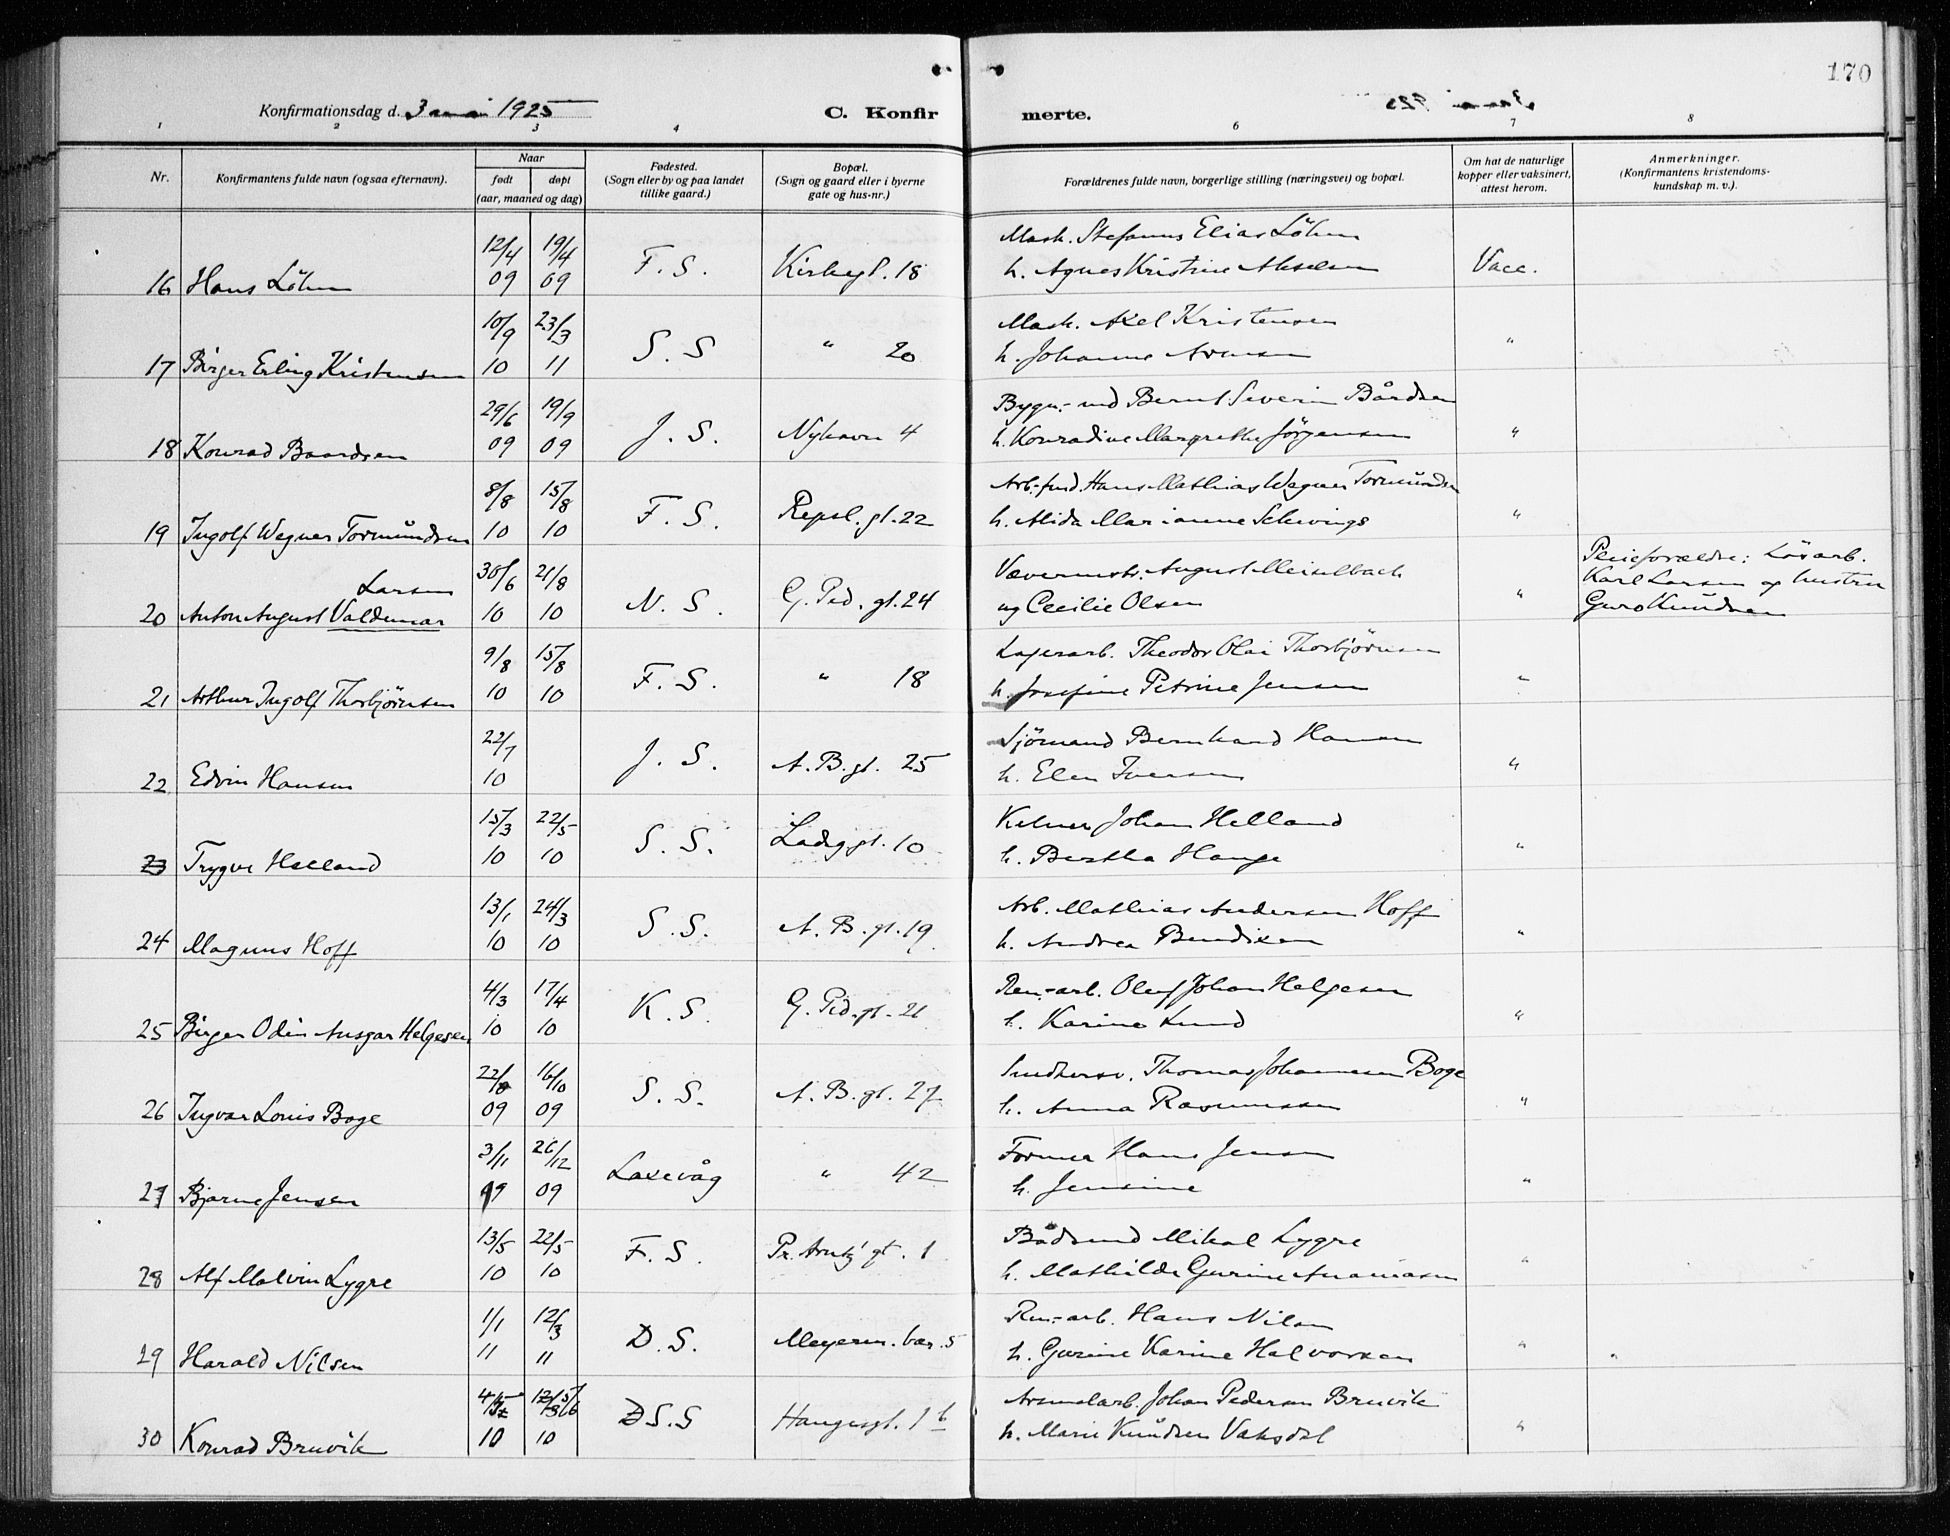 170
Konfirmationsdag d. 3 mai 1925
C. Konfirmerte.
1 2 3 4 5 6 7 8
Nr.
Konfirmantens fulde navn (ogsaa efternavn).
Naar
født døpt
(aar, maaned og dag)
Fødested.
(Sogn eller by og paa landet
tillike gaard.)
Bopæl.
(Sogn og gaard eller i byerne
gate og hus-nr.)
Forældrenes fulde navn, borgerlige stilling (næringsvei) og bopæl.
Om hat de naturlige
kopper eller vaksinert,
attest herom.
Anmerkninger.
(Konfirmantens kristendoms-
kundskap m. v.).
12/4 19/4 F. S. Kirkegt. 18 Mask. Stefanus Elias Löhm
16 Hans Löhm 09 09 h. Agnes Kristine Akselsen Vacc.
10/9 23/3 S. S " 20 Mask. Axel Kristensen
17 Birger Erling Kristensen 10 11 h. Johanne Arnesen "
29/6 19/9 J. S. Nyhavn 4 Bygn.- Bernt Severin Bårdsen
18 Konrad Baardsen 09 09 h. Konradine Margrethe Jörgensen "
8/8 15/8 F. S. Repsl. gt. 22 Arb.-fmd. Hans Mathias Wegner Tormündsen
19 Ingolf Wegner Tormündsen 10 10 h. Alida Marianne "
Larsen 30/6 21/8 N. S. G. Ped. gt. 24 Vævermstr. August Meiselbach Pleieforældre: Lösarb.
20 Anton August Valdemar 10 10 og Cecilie Olsen " Karl Larsen og hustru
Guro Knüdsen
9/8 15/8 F. S. " 18 Lagerarb. Theodor Olai Thorbjörnsen
21 Arthur Ingolf Thorbjörnsen 10 10 h. Josefine Petrine Jensen "
22/7 J. S. A. B. gt. 25 Sjömand Bernhard Hansen
22 Edvin Hansen 10 h. Elen Iversen "
15/3 22/5 S. S. Ladeg gt. 10 Kelner Johan Helland
23 Trygve Helland 10 10 h. Bertha Hauge "
13/1 24/3 S. S. A. B. gt. 19 Arb. Mathias Andersen Hoff
24 Magnus Hoff 10 10 h. Andrea Bendixen "
4/3 17/4 K. S. G. Ped. gt. 21 Ren.-arb. Oluf Johan Helgesen
25 Birger Odin Ansgar Helgesen 10 10 h. Karine Lund "
22/8 16/10 S. S. A. B. gt. 27 Thomas Johannesen Boge
26 Ingvar Louis Boge 09 09 h. Anna Rasmussen "
3/11 26/12 Laxevåg " 42 Former Hans Jensen
27 Bjarne Jensen 09 09 h. Jensine "
13/5 22/5 F. S. Pr. Arntz' gt. 1 Bådsmd Mikal Lygre
28 Alf Malvin Lygre 10 10 h. Mathilde Gurine "
1/1 12/3 D. S. Meyerm. bar. 5 Ren.-arb. Hans Nilsen
29 Harald Nilsen 11 11 h. Gurine Karine Halvorsen "
S.S Haugesgt. 1 b Arsenalarb. Johan Pedersen Bruvik
30 Konrad Bruvik 10 10 h. Marie Knüdsen Vaksdal "